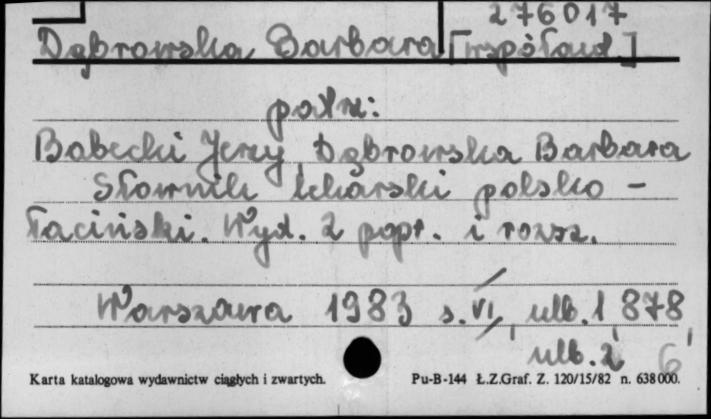 276017
Dąbrowska Barbara [współaut.]
patrz:
Babecki Jerzy, Dąbrowska Barbara
Słownik lekarski polsko -
łaciński. Wyd. 2 popr. i rozsz.
Warszawa 1983 s. VI, ulb. 1 878
ulb. 2 6
Karta katalogowa wydawnictw ciągłych i zwartych. Pu-B-144 Ł.Z.Graf. Z. 120/15/82 n. 638000.